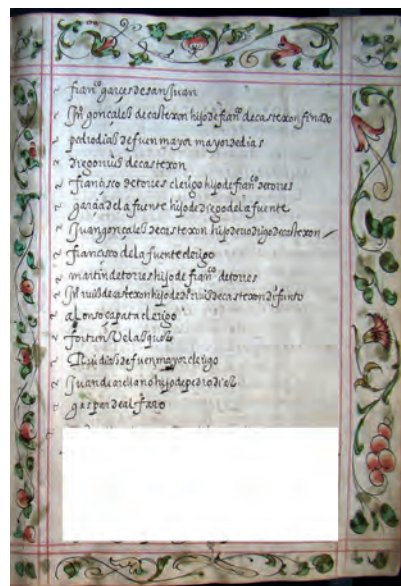 ~ fran^co garçes de san Juan
~ Ju^o gonçales de castexon hijo de fran^co de castexon finado
~ pedro dias de fuenmayor mayor de dias
~ diego de castexon
~ francisco de torres clerigo hijo de fran^co de torres
~ garcia de la fuente hijo de diego de la fuente
~ Juan gonçales de castexon hijo de rodrigo de castexon
~ francisco de la fuente clerigo
~ martin de torres hijo de fran^co de torres
~ ruis de castexon hijo de ruis de castexon difunto
~ alonso çapata clerigo
~ fortun Velasques
~ Rui dias de fuenmayor clerigo
~ Juan de arellano hijo de pedro dies
~ gaspar de alfaro